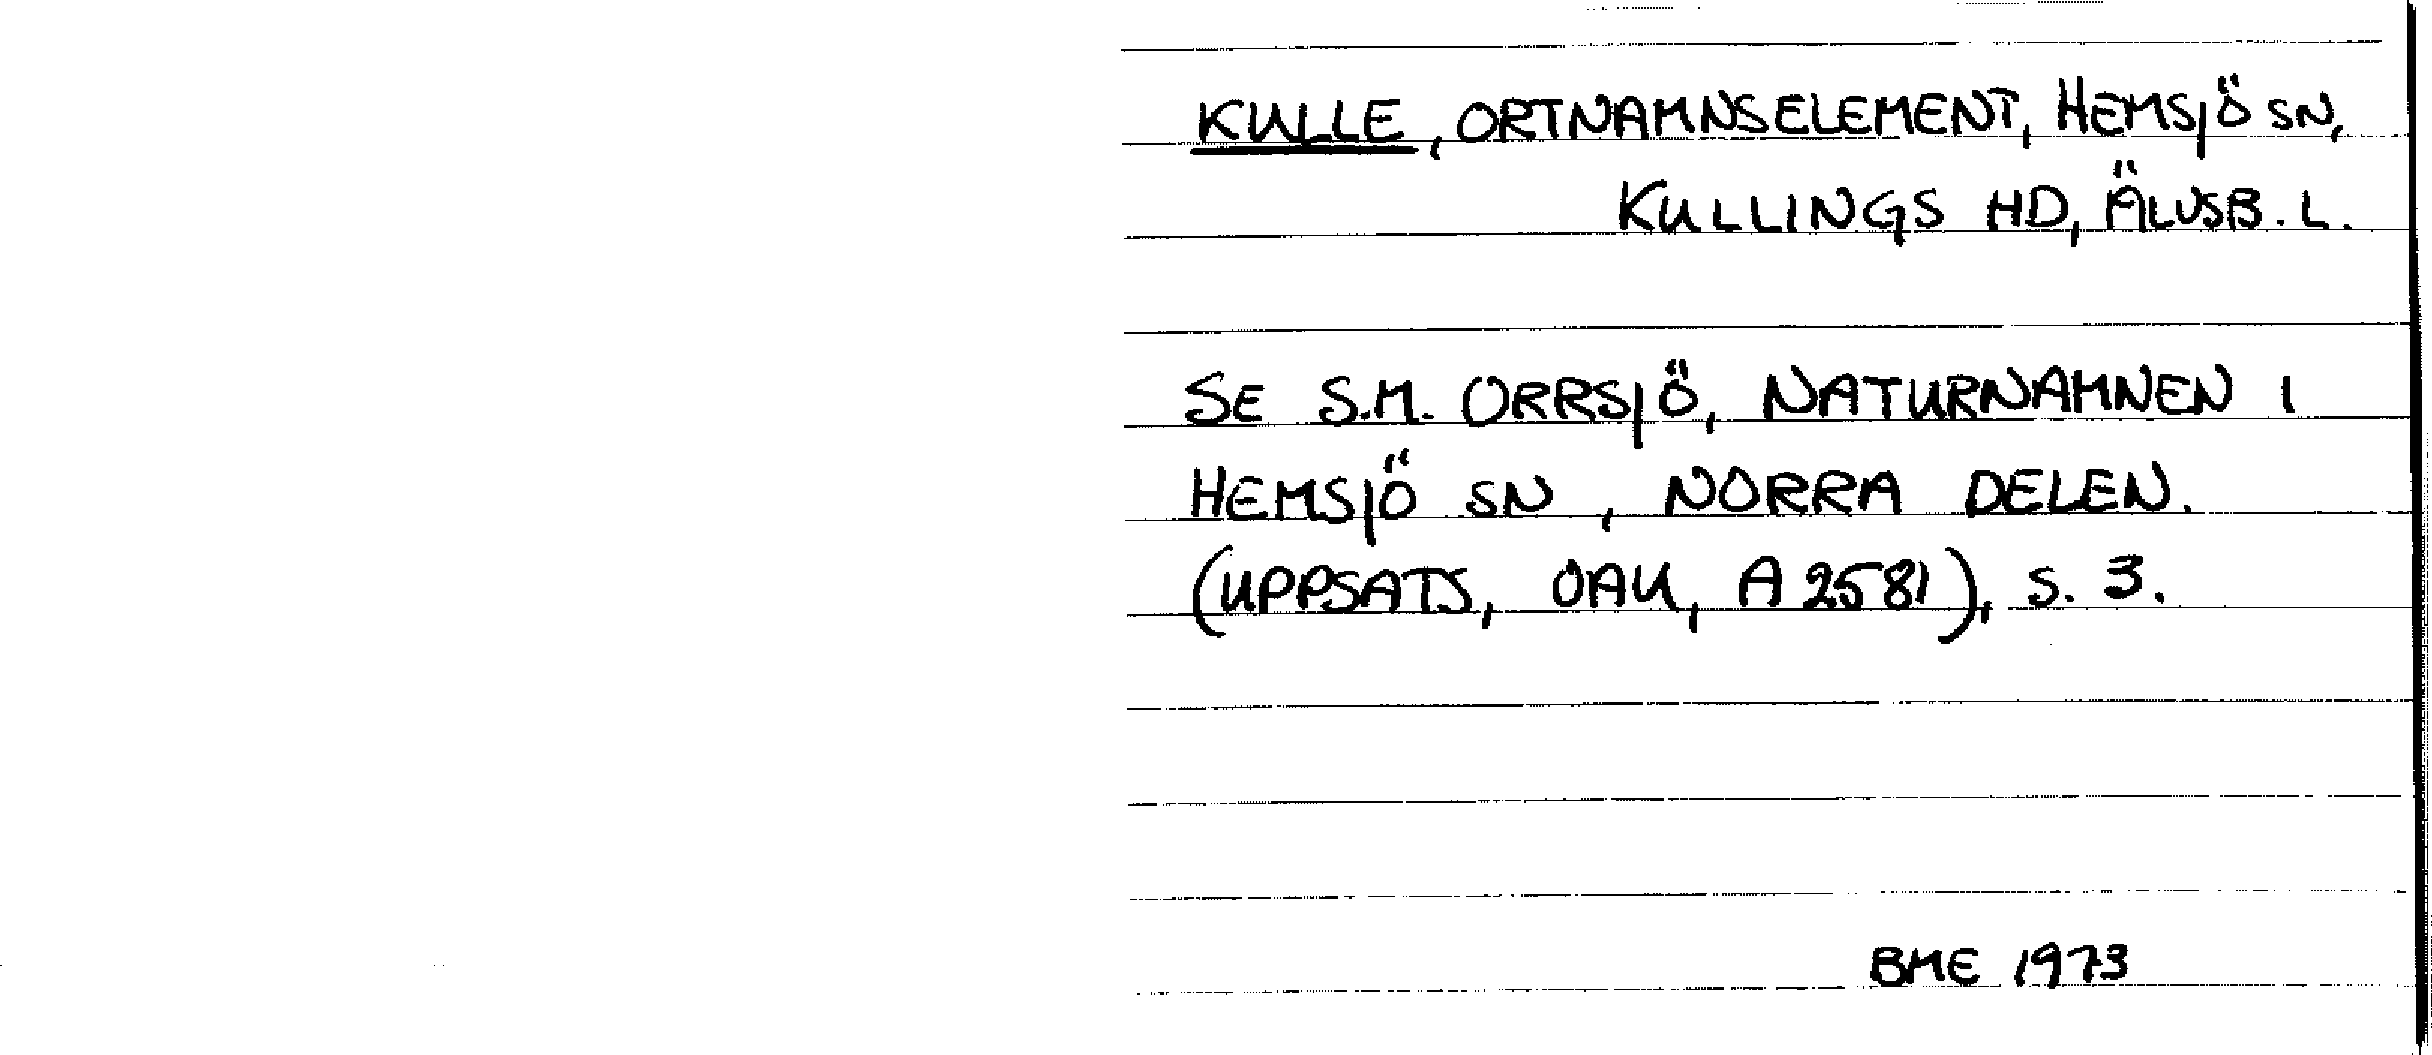 KULLE, ORTNAMNSELEMENT, HEMSJÖ SN,
KULLINGS HD, ÄLVSB. L.
SE S.M. ORRSJÖ, NATURNAMNEN I
HEMSJÖ SN, NORRA DELEN.
(UPPSATS, OAU, A 2581), S. 3.
BME 1973